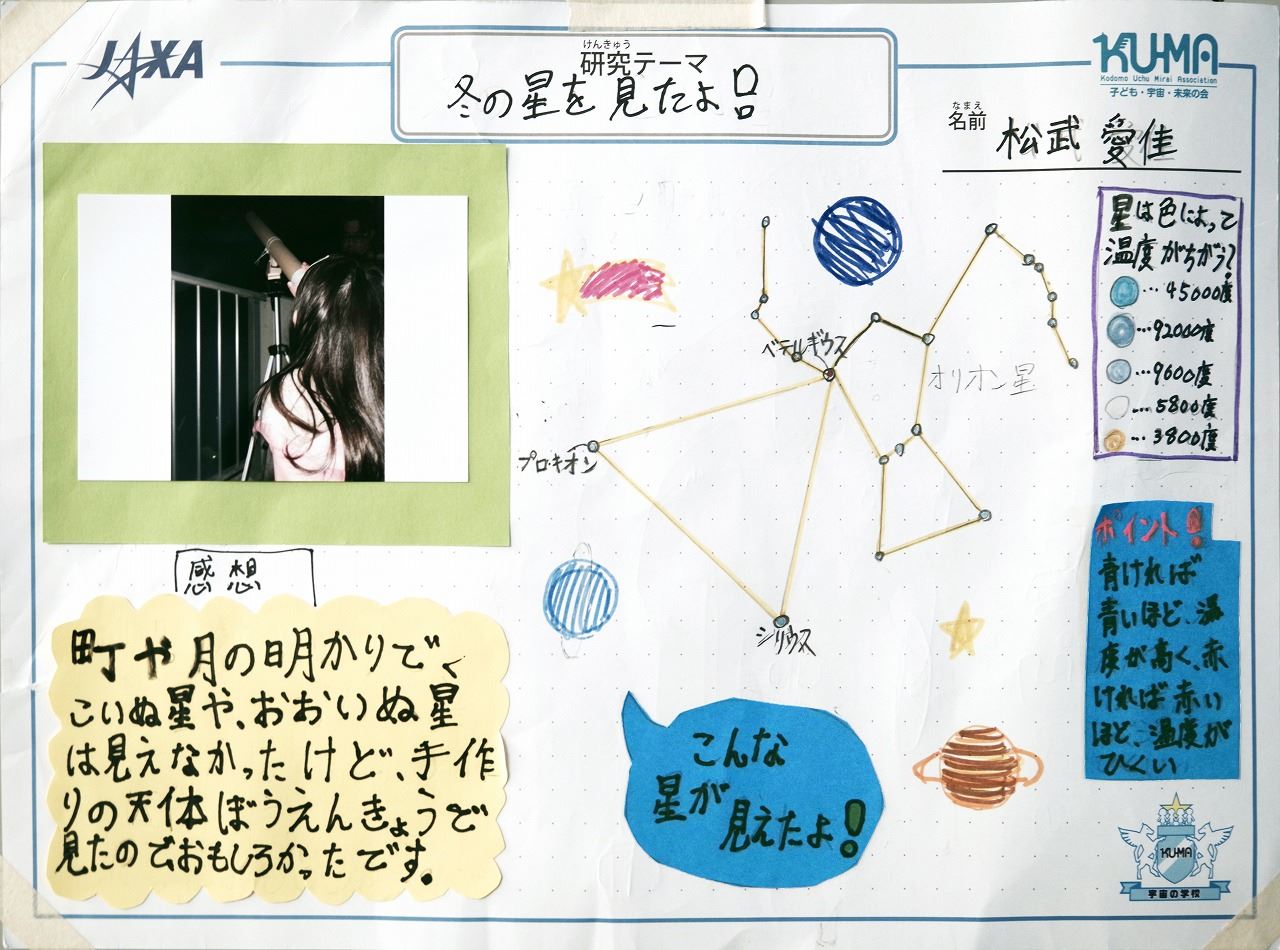 JAXA
けんきゅう
研究テーマ
冬の星を見たよ!!
KU-MA
Kodomo Uchu Mirai Association
子ども・宇宙・未来の会
なまえ
名前
松武 愛佳
星は色によって
温度がちがう!
…45000度
…92000度
…9600度
…5800度
…3800度
ベテルギウス
オリオン星
プロキオン
シリウス
ポイント!
青ければ
青いほど、温
度が高く、赤
ければ赤い
ほど、温度が
ひくい
感想
町や月の明かりで、
こいぬ星や、おおいぬ星
は見えなかったけど、手作
りの天体ぼうえんきょうで
見たのでおもしろかったです。
こんな
星が
見えたよ!
KU-MA
宇宙の学校